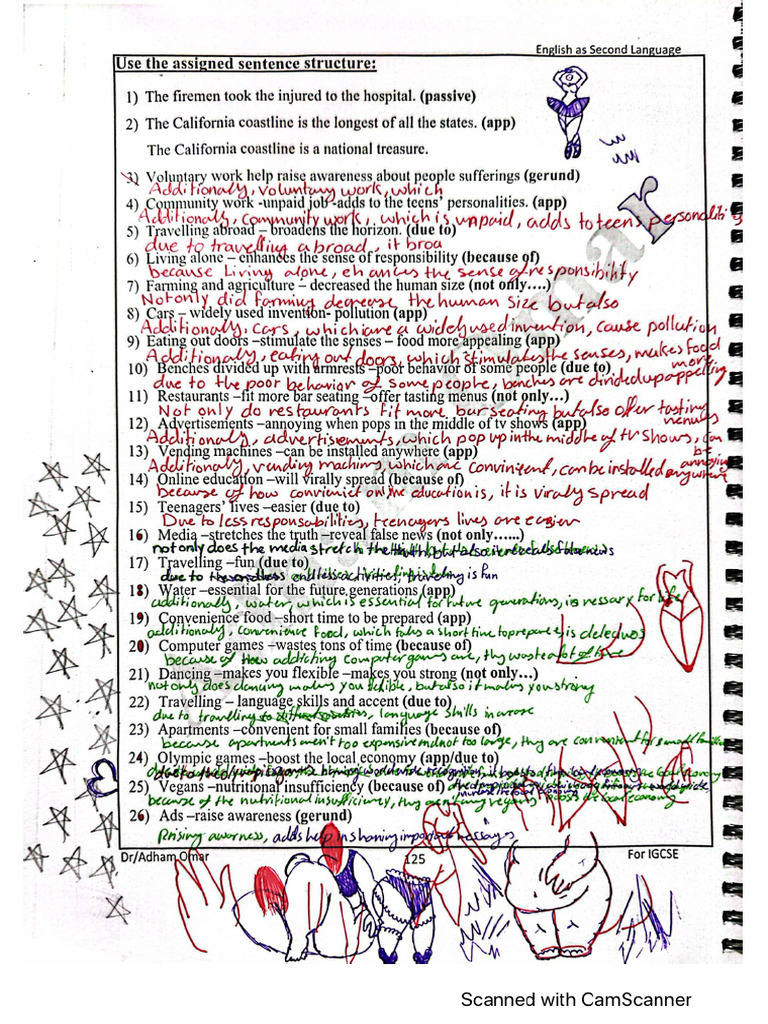 English as Second Language
Use the assigned sentence structure:
1) The firemen took the injured to the hospital. (passive)
2) The California coastline is the longest of all the states. (app)
The California coastline is a national treasure.
3) Voluntary work help raise awareness about people sufferings (gerund)
Additionally, voluntary work, which
4) Community work -unpaid job -adds to the teens' personalities. (app)
Additionally, community work, which is unpaid, adds to teens personality
5) Travelling abroad – broadens the horizon. (due to)
due to travelling abroad, it broa
6) Living alone – enhances the sense of responsibility (because of)
because Living alone, enhances the sense of responsibility
7) Farming and agriculture – decreased the human size (not only….)
Not only did farming decrease the human size but also
8) Cars – widely used invention- pollution (app)
Additionally, cars, which are a widely used invention, cause pollution
9) Eating out doors –stimulate the senses – food more appealing (app)
Additionally, eating out doors, which stimulates the senses, makes food more appelling
10) Benches divided up with armrests –poor behavior of some people (due to)
due to the poor behavior of some people, benches are divided up
11) Restaurants –fit more bar seating –offer tasting menus (not only…)
Not only do restaurants fit more bar seating but also offer tasting menues
12) Advertisements –annoying when pops in the middle of tv shows (app)
Additionally, advertisements, which pop up in the middle of TV shows, can be annoying
13) Vending machines –can be installed anywhere (app)
Additionally, vending machines which are convinient, can be installed anywhere
14) Online education –will virally spread (because of)
because of how convinient online education is, it is viraly spread
15) Teenagers' lives –easier (due to)
Due to less responsabilities, teenagers lives are easier
16) Media –stretches the truth –reveal false news (not only…...)
not only does the media stretch the truth, but also news
17) Travelling –fun (due to)
due to endless activities, traveling is fun
18) Water –essential for the future generations (app)
additionally, water, which is essential for future generations, is nessary for life
19) Convenience food –short time to be prepared (app)
additionally, convenience food, which takes a short time to prepare, is
20) Computer games –wastes tons of time (because of)
because of how addicting computer games are, they waste a lot of time
21) Dancing –makes you flexible –makes you strong (not only…)
not only does dancing makes you flexible, but also it makes you strong
22) Travelling – language skills and accent (due to)
due to travelling to language skills increase
23) Apartments –convenient for small families (because of)
because apartments aren't too expensive and not too large, they are convenient for small families
24) Olympic games –boost the local economy (app/due to)
25) Vegans –nutritional insufficiency (because of)
because of the nutritional insufficiency, they aren't economy
26) Ads –raise awareness (gerund)
Raising awarness, adds help in sharing messages
Dr/Adham Omar
125
For IGCSE
Scanned with CamScanner